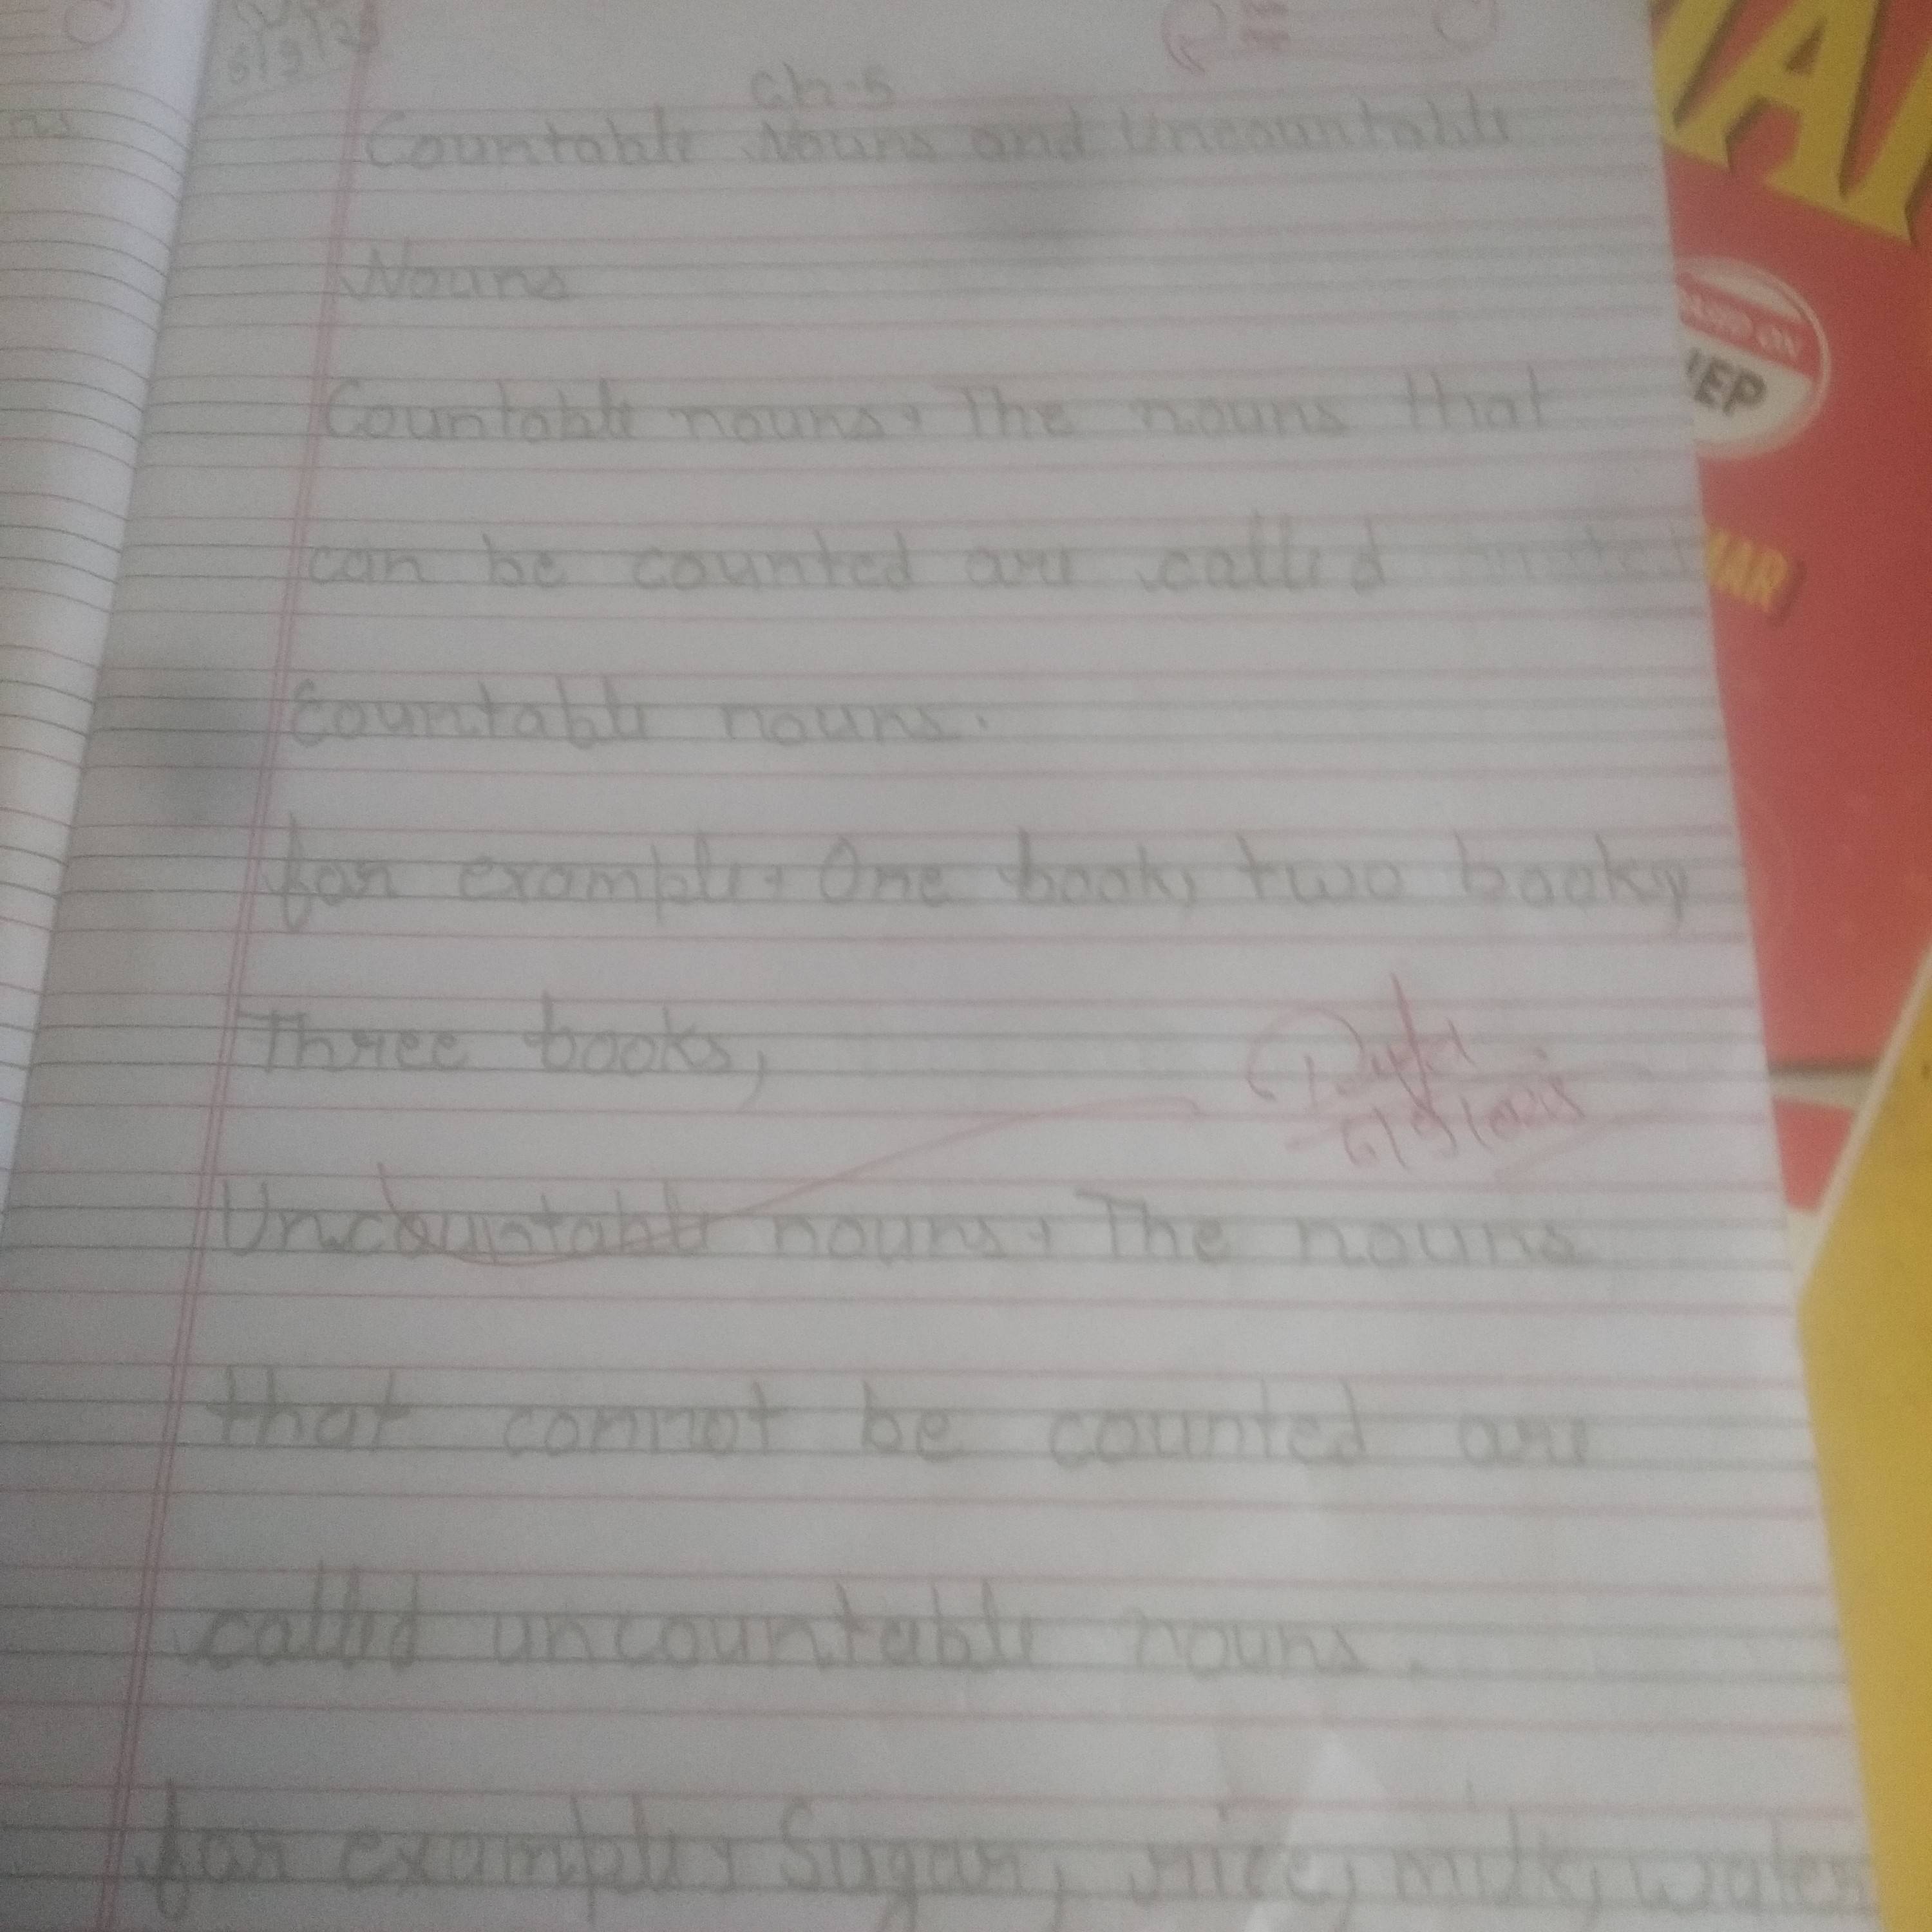 Ch-5
Countable Nouns and Uncountable
Nouns
Countable nouns → The nouns that
can be counted are called
Countable nouns.
for example → One book, two books,
Three books,
Uncountable nouns → The nouns
that cannot be counted are
called uncountable nouns.
for example → Sugar, rice, milk, water
IEP
MAR